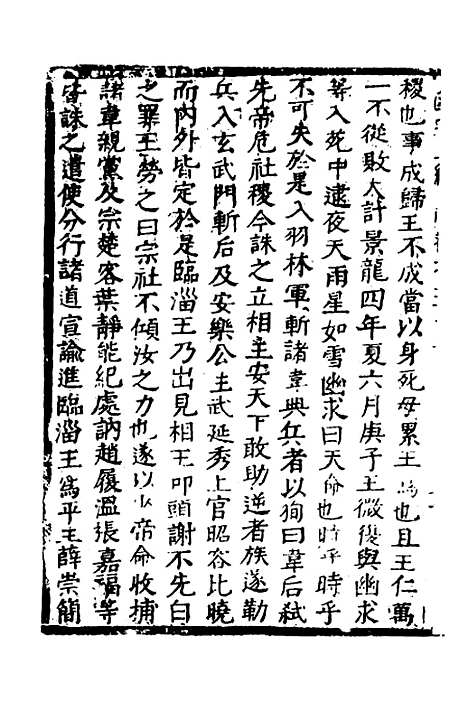 稷也事成歸王不成當以身死毋累王爲也且王仁萬
一不從敗大計景龍四年夏六月庚子王微復與幽求
等入苑中逮夜天雨星如雪幽求曰天命也時乎時乎
不可失於是入羽林軍斬諸韋典兵者以狥曰韋后弒
先帝危社稷今誅之立相王安天下敢助逆者族遂勒
兵入玄武門斬后及安樂公主武延秀上官昭容比曉
而內外皆定於是臨淄王乃出見相王叩頭謝不先白
之罪王勞之曰宗社不傾汝之力也遂以少帝命收捕
諸韋親黨及宗楚客葉靜能紀處訥趙履溫張嘉福等
皆誅之遣使分行諸道宣諭進臨淄王爲平王薛崇簡